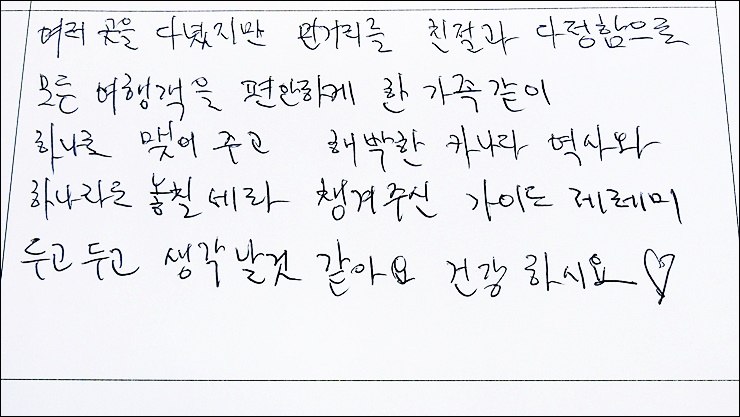 여러 곳을 다녔지만 먼거리를 친절과 다정함으로
모든 여행객을 편안하게 한 가족같이
하나로 맺어 주고 해박한 카나다 역사와
하나라도 놓칠세라 챙겨주신 가이드 제레미
두고 두고 생각 날것 같아요 건강 하시요♡